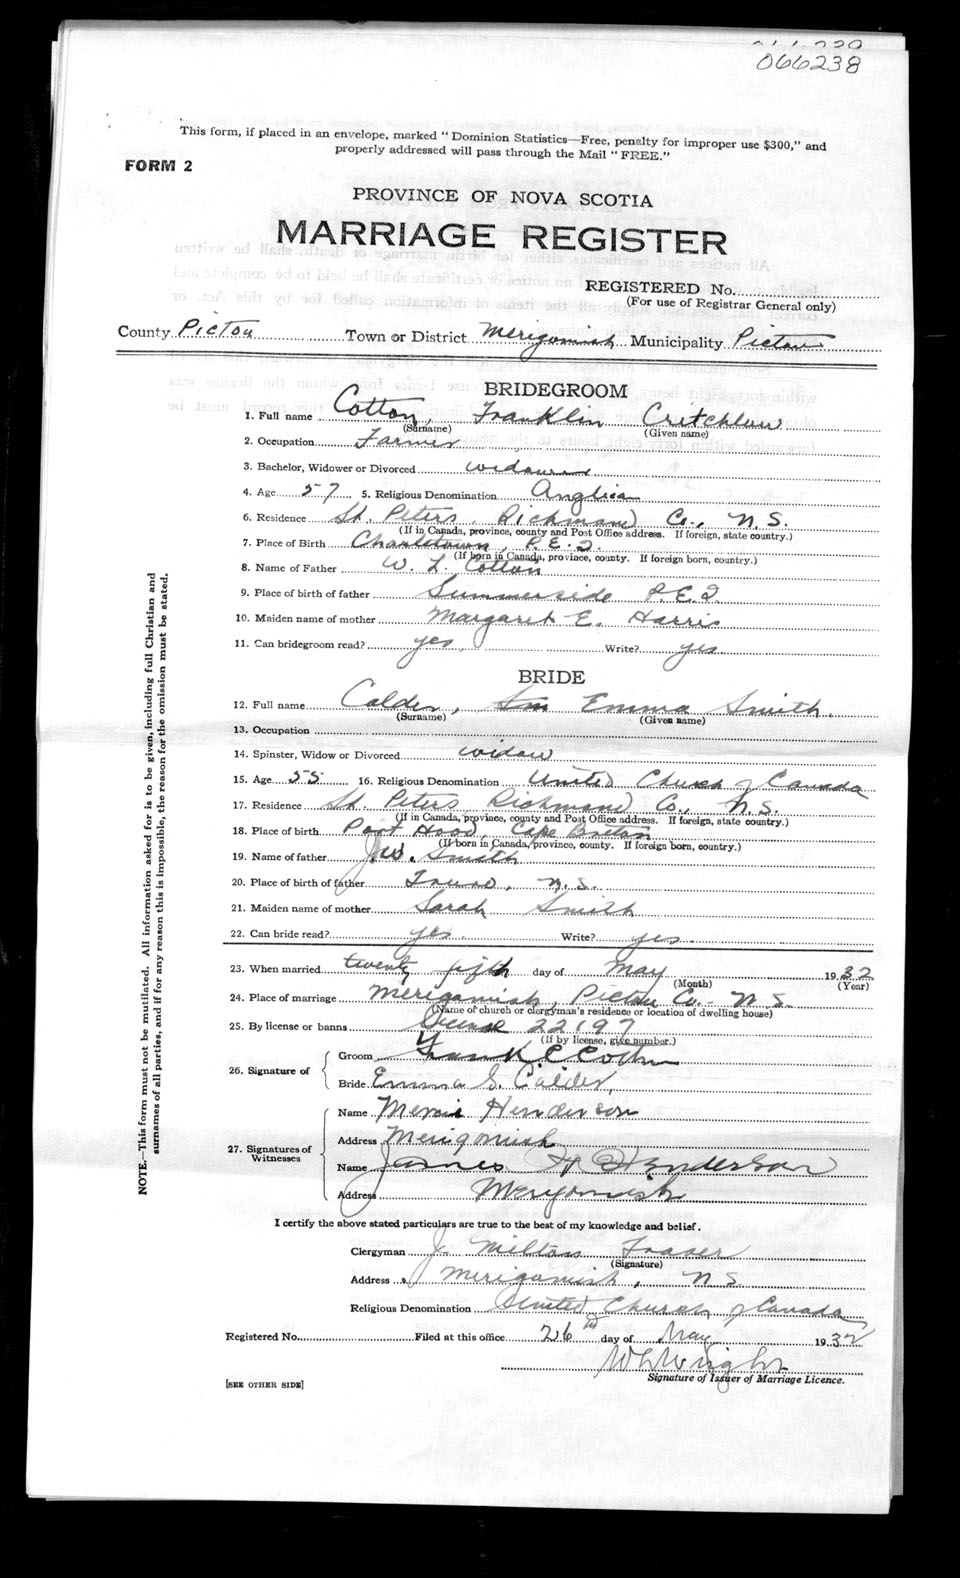 066238
This form, if placed in an envelope, marked "Dominion Statistics—Free, penalty for improper use $300," and
properly addressed will pass through the Mail "FREE."
FORM 2
PROVINCE OF NOVA SCOTIA
MARRIAGE REGISTER
REGISTERED No.
(For use of Registrar General only)
County Pictou Town or District Merigomish Municipality Pictou
BRIDEGROOM
1. Full name Cotton, Franklin Critchlow
(Surname) (Given name)
2. Occupation Farmer
3. Bachelor, Widower or Divorced widower
4. Age 57 5. Religious Denomination Anglican
6. Residence St. Peters, Richmond Co., N.S.
(If in Canada, province, county and Post Office address. If foreign, state country.)
7. Place of Birth Charlotetown, P.E.I.
(If born in Canada, province, county. If foreign born, country.)
8. Name of Father W. L. Cotton
9. Place of birth of father Summerside P.E.I.
10. Maiden name of mother Margaret E. Harris
11. Can bridegroom read? yes, Write? yes
BRIDE
12. Full name Calder, Emma Smith.
(Surname) (Given name)
13. Occupation
14. Spinster, Widow or Divorced widow
15. Age 55 16. Religious Denomination United Church of Canada
17. Residence St. Peters, Richmond Co., N.S.
(If in Canada, province, county and Post Office address. If foreign, state country.)
18. Place of birth Port Hood, Cape Breton
(If born in Canada, province, county. If foreign born, country.)
19. Name of father J.W. Smith
20. Place of birth of father Truro, N.S.
21. Maiden name of mother Sarah Smith
22. Can bride read? yes. Write? yes
23. When married twenty fifth day of May 1932
(Month) (Year)
24. Place of marriage Merigomish, Pictou Co. N.S.
(Name of church or clergyman's residence or location of dwelling house)
25. By license or banns License 22197
(If by license, give number.)
26. Signature of
Groom Frank C Cotton
Bride Emma S. Calder,
27. Signatures of Witnesses
Name Henderson
Address Merigomish
Name James H Henderson
Address Merigomish
I certify the above stated particulars are true to the best of my knowledge and belief.
Clergyman J. Milton Fraser
(Signature)
Address Merigomish, N S
Religious Denomination United Church of Canada
Registered No. Filed at this office 26th day of May 1932
W L Wright
Signature of Issuer of Marriage Licence.
[SEE OTHER SIDE]
NOTE.—This form must not be mutilated. All information asked for is to be given, including full Christian and
surnames of all parties, and if for any reason this is impossible, the reason for the omission must be stated.